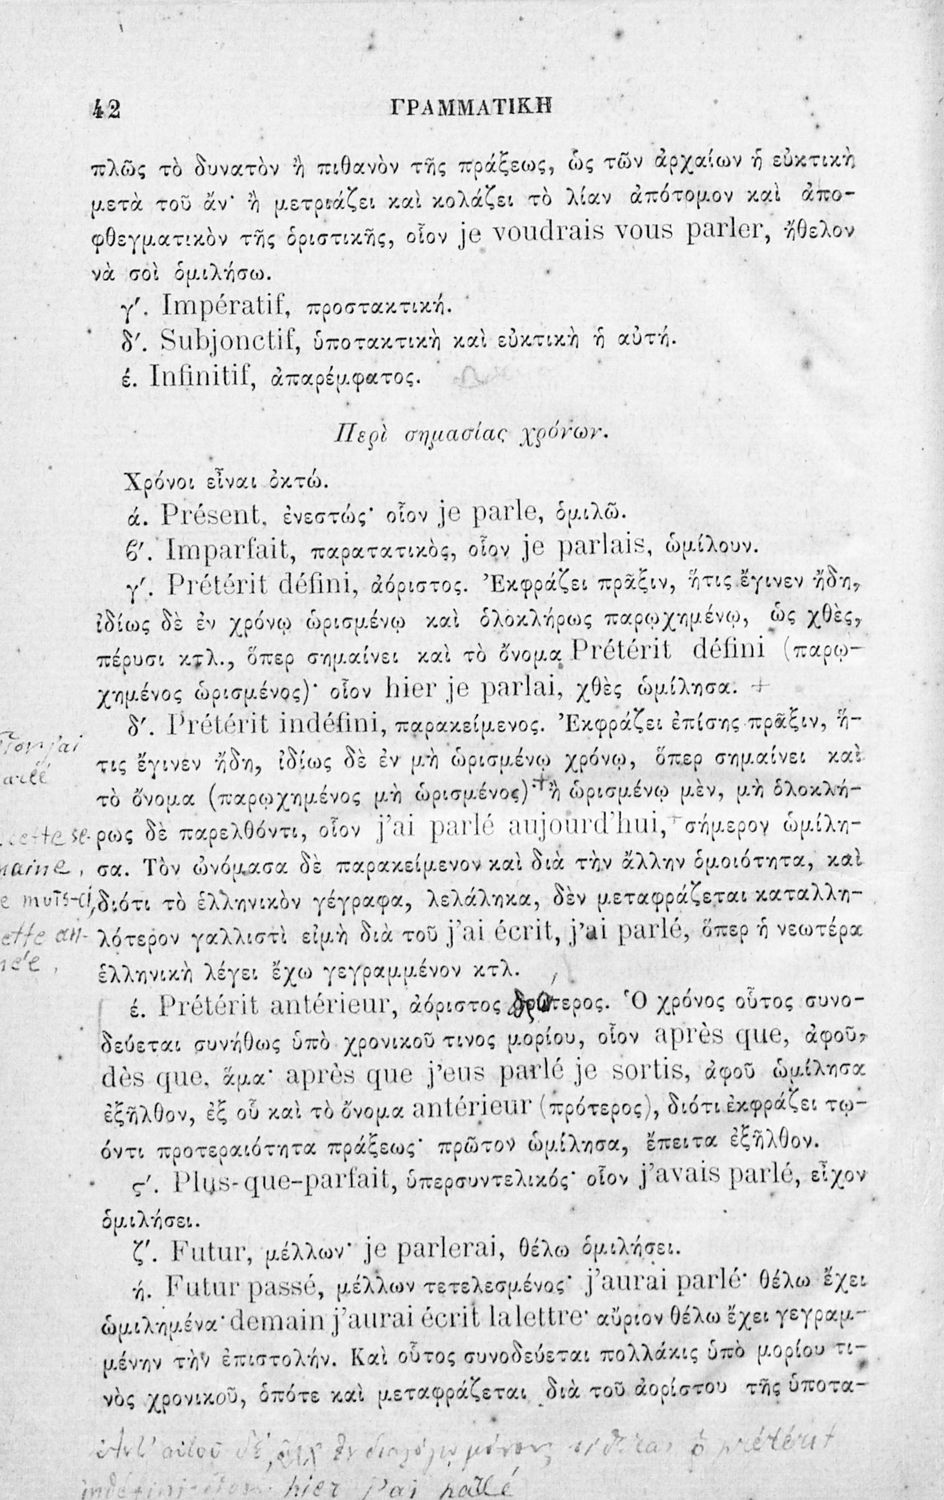 42
ΓΡΑΜΜΑΤΙΚΗ
πλῶς τὸ δυνατὸν ἢ πιθανὸν τῆς πράξεως, ὡς τῶν ἀρχαίων ἡ εὐκτικὴ
μετὰ τοῦ ἄν· ἢ μετριάζει καὶ κολάζει τὸ λίαν ἀπότομον καὶ ἀπο-
φθεγματικὸν τῆς ὁριστικῆς, οἷον je voudrais vous parler, ἤθελον
νὰ σοὶ ὁμιλήσω.
γ′. Impératif, προστακτική.
δ′. Subjonctif, ὑποτακτικὴ καὶ εὐκτικὴ ἡ αὐτή.
έ. Infinitif, ἀπαρέμφατος.
Περὶ σημασίας χρόνων.
Χρόνοι εἶναι ὀκτώ.
ά. Présent, ἐνεστώς· οἷον je parle, ὁμιλῶ.
ϐ′. Imparfait, παρατατικὸς, οἷον je parlais, ὡμίλουν.
γ′. Prétérit défini, ἀόριστος. Ἐκφράζει πρᾶξιν, ἥτις ἔγινεν ἤδη,
ἰδίως δὲ ἐν χρόνῳ ὡρισμένῳ καὶ ὁλοκλήρως παρῳχημένῳ, ὡς χθὲς,
πέρυσι κτλ., ὅπερ σημαίνει καὶ τὸ ὄνομα Prétérit défini (παρῳ-
χημένος ὡρισμένος)· οἷον hier je parlai, χθὲς ὡμίλησα. +
δ′. Prétérit indéfini, παρακείμενος. Ἐκφράζει ἐπίσης πρᾶξιν, ἥ-
τις ἔγινεν ἤδη, ἰδίως δὲ ἐν μὴ ὡρισμένῳ χρόνῳ, ὅπερ σημαίνει καὶ
τὸ ὄνομα (παρῳχημένος μὴ ὡρισμένος)·+ἢ ὡρισμένῳ μὲν, μὴ ὁλοκλή-
cette se-
ρως δὲ παρελθόντι, οἷον j'ai parlé aujourd'hui,+ σήμερον ὡμίλη-
maine,
σα. Τὸν ὠνόμασα δὲ παρακείμενον καὶ διὰ τὴν ἄλλην ὁμοιότητα, καὶ
mois-ci,
διότι τὸ ἑλληνικὸν γέγραφα, λελάληκα, δὲν μεταφράζεται καταλλη-
ette an-
λότερον γαλλιστὶ εἰμὴ διὰ τοῦ j'ai écrit, j'ai parlé, ὅπερ ἡ νεωτέρα
née,
ἑλληνικὴ λέγει ἔχω γεγραμμένον κτλ.
έ. Prétérit antérieur, ἀόριστος πρότερος. Ὁ χρόνος οὗτος συνο-
δεύεται συνήθως ὑπὸ χρονικοῦ τινος μορίου, οἷον après que, ἀφοῦ,
dès que, ἅμα· après que j'eus parlé je sortis, ἀφοῦ ὡμίλησα
ἐξῆλθον, ἐξ οὗ καὶ τὸ ὄνομα antérieur (πρότερος), διότι ἐκφράζει τῳ-
όντι προτεραιότητα πράξεως· πρῶτον ὡμίλησα, ἔπειτα ἐξῆλθον.
ϛ′. Plus-que-parfait, ὑπερσυντελικός· οἷον j'avais parlé, εἶχον
ὁμιλήσει.
ζ′. Futur, μέλλων· je parlerai, θέλω ὁμιλήσει.
ή. Futur passé, μέλλων τετελεσμένος· j'aurai parlé· θέλω ἔχει
ὡμιλημένα· demain j'aurai écrit la lettre· αὔριον θέλω ἔχει γεγραμ-
μένην τὴν ἐπιστολήν. Καὶ οὗτος συνοδεύεται πολλάκις ὑπὸ μορίου τι-
νὸς χρονικοῦ, ὁπότε καὶ μεταφράζεται διὰ τοῦ ἀορίστου τῆς ὑποτα-
prétérit
hier j'ai parlé